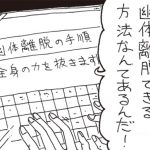 幽体離脱できる
方法なんてあるんだ！
幽体離脱の手順
全身の力を抜きます